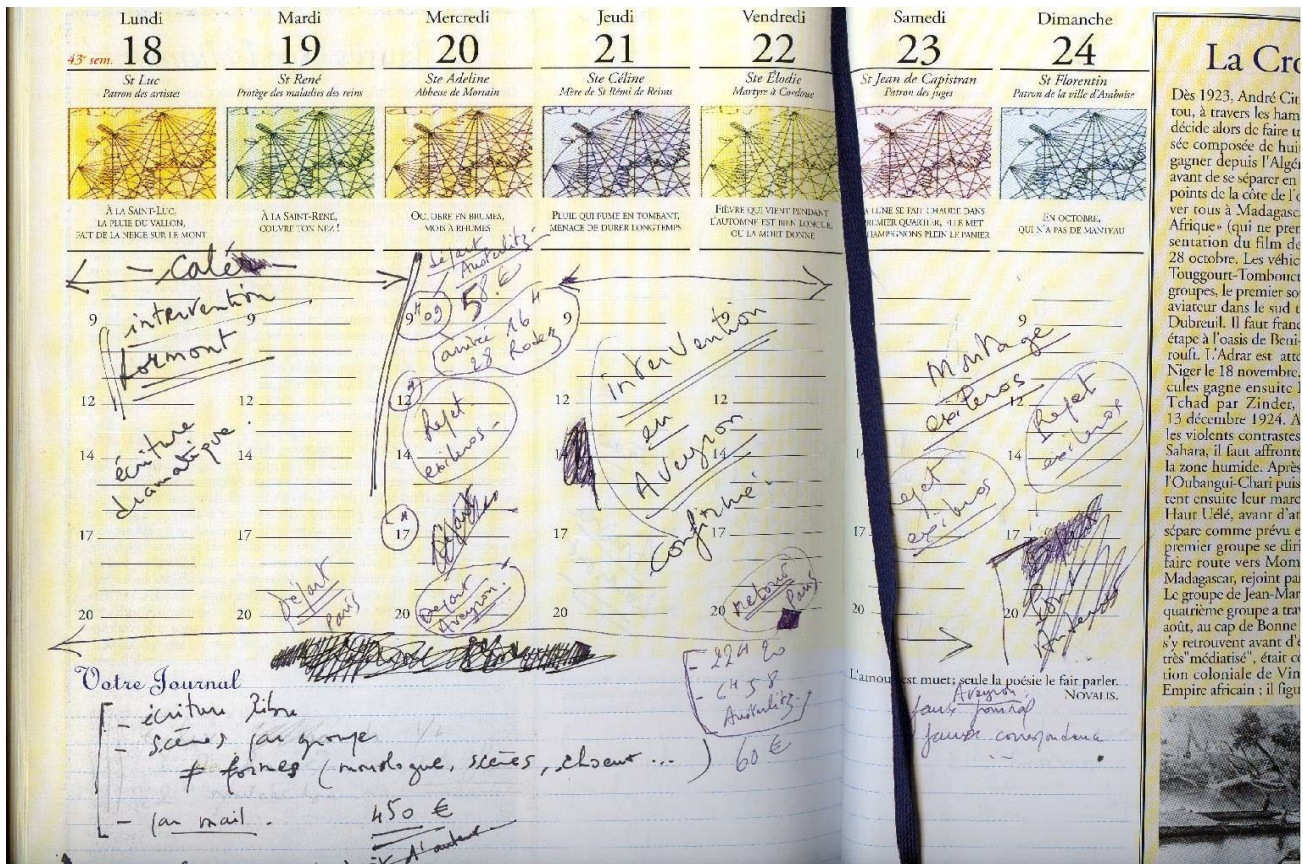 Lundi
18
43e sem.
St Luc
Patron des artistes
À LA SAINT-LUC,
LA PLUIE DU VALLON,
FAIT DE LA NEIGE SUR LE MONT
Mardi
19
St René
Protège des maladies des reins
À LA SAINT-RENÉ,
COUVRE TON NEZ !
Mercredi
20
Ste Adeline
Abbesse de Mortain
OCTOBRE EN BRUMES,
MOIS À RHUMES
Jeudi
21
Ste Céline
Mère de St Rémi de Reims
PLUIE QUI FUME EN TOMBANT,
MENACE DE DURER LONGTEMPS
Vendredi
22
Ste Élodie
Martyre à Cordoue
FIÈVRE QUI VIENT PENDANT
L'AUTOMNE EST BIEN LONGUE,
OU LA MORT DONNE
Samedi
23
St Jean de Capistran
Patron des juges
LUNE SE FAIT CHAUDE DANS
PREMIER QUARTIER, ELLE MET
CHAMPIGNONS PLEIN LE PANIER
Dimanche
24
St Florentin
Patron de la ville d'Amboise
EN OCTOBRE,
QUI N'A PAS DE MANTEAU
intervention
Lormont
écriture
dramatique
9
12
14
17
20
9
12
14
17
20
Départ
Paris
départ
Austerlitz
9H09
58 €
arrivée 16H
28 Rodez
12H
14
17H
20
Départ
Aveyron
9
12
14
17
20
intervention
en
Aveyron
confirmé
9
12
14
17
20
retour
Paris
9
12
14
17
20
Montage
9
12
14
17
20
Votre Journal
- écriture libre
- scènes par groupe
≠ formes (monologue, scènes, choeur ...)
- par mail.
450 €
- 22H20
- 6H58
Austerlitz
60 €
L'amour est muet; seule la poésie le fait parler.
NOVALIS.
Aveyron
faux journal
fausse correspondance
La Cro
Dès 1923, André Cit
tou, à travers les ham
décide alors de faire tr
sée composée de huit
gagner depuis l'Algér
avant de se séparer en
points de la côte de l'o
ver tous à Madagasc
Afrique» (qui ne pren
sentation du film de
28 octobre. Les véhic
Touggourt-Tombouct
groupes, le premier so
aviateur dans le sud t
Dubreuil. Il faut franc
étape à l'oasis de Beni-
rouft. L'Adrar est atte
Niger le 18 novembre.
cules gagne ensuite
Tchad par Zinder,
13 décembre 1924. A
les violents contrastes
Sahara, il faut affronte
la zone humide. Après
l'Oubangui-Chari puis
tent ensuite leur marc
Haut Uélé, avant d'at
sépare comme prévu e
premier groupe se diri
faire route vers Mom
Madagascar, rejoint pa
Le groupe de Jean-Mar
quatrième groupe a tra
août, au cap de Bonne
s'y retrouvent avant d'
très "médiatisé", était c
tion coloniale de Vin
Empire africain ; il figu